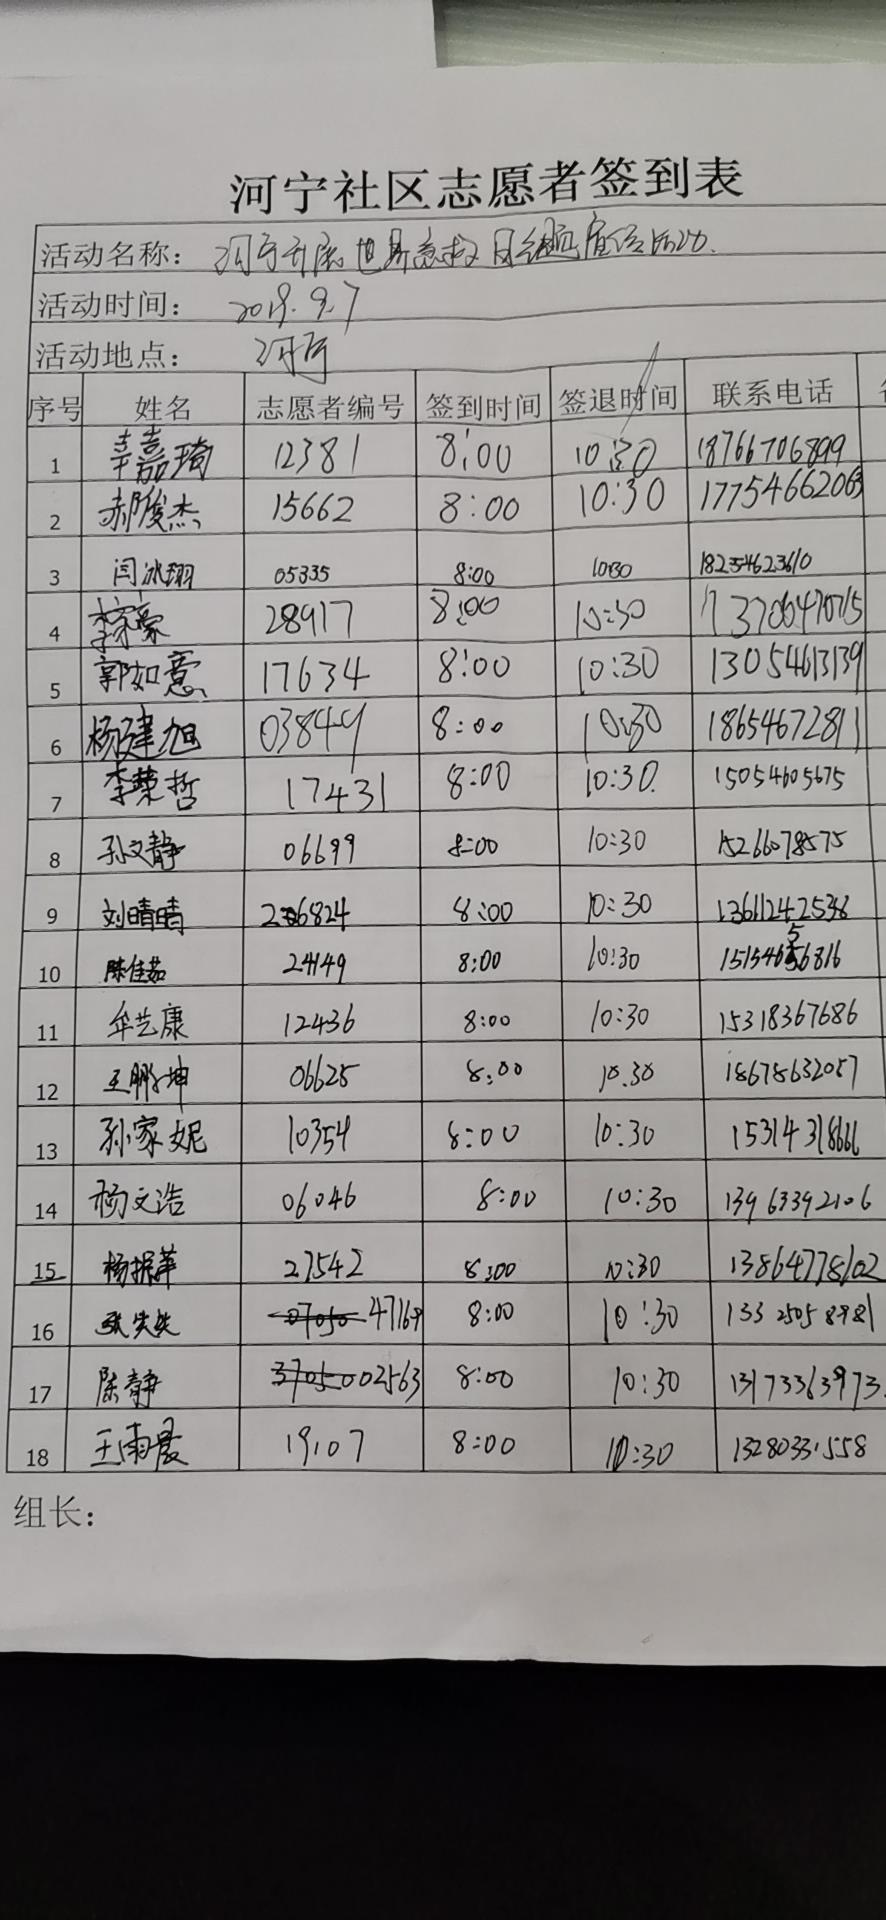 河宁社区志愿者签到表
活动名称： 河宁开展世界急救日主题宣传活动.
活动时间： 2019.9.7
活动地点： 河宁
序号 姓名 志愿者编号 签到时间 签退时间 联系电话
1 辛嘉琦 12381 8:00 10:30 18766706899
2 郝俊杰 15662 8:00 10:30 17754662063
3 闫冰翔 05335 8:00 10:30 18254623610
4 28917 8:00 10:30
5 郭如意 17634 8:00 10:30 13054613139
6 杨建旭 03849 8:00 10:30 18654672811
7 李荣哲 17431 8:00 10:30 15054605675
8 孙文静 06699 8:00 10:30 15266078575
9 刘晴晴 8:00 10:30 13611242538
10 陈佳茹 24149 8:00 10:30
11 牟艺康 12436 8:00 10:30 15318367686
12 王鹏坤 06625 8:00 10:30 18678632057
13 孙家妮 10354 8:00 10:30 15314318666
14 杨文浩 06046 8:00 10:30 13963392106
15 杨振萍 27542 8:00 10:30 13864778102
16 47169 8:00 10:30 13325058981
17 陈静 02563 8:00 10:30 13173363973
18 王雨晨 19107 8:00 10:30 13280331558
组长：